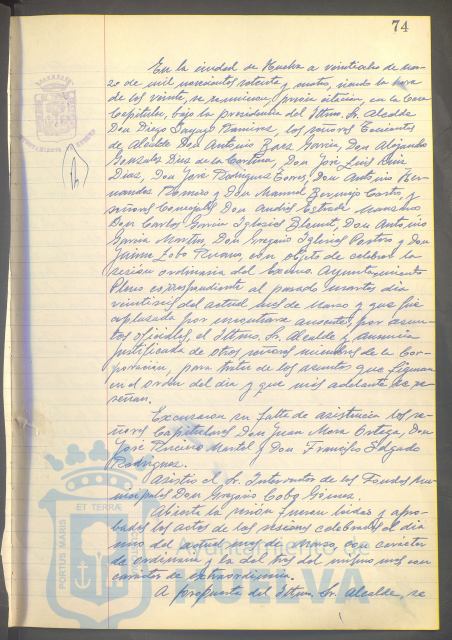 74
En la ciudad de Huelva a veintiocho de mar-
zo de mil novecientos setenta y cuatro, siendo la hora
de las veinte, se reunieron, previa citación, en la Casa
Capitular, bajo la presidencia del Iltmo. Sr. Alcalde
Don Diego Ramírez, los señores Tenientes
de Alcalde Don Antonio García, Don Alejandro
González Díaz de la Don José Luis Ruiz
Díaz, Don José Rodríguez Don Antonio Her-
nández y Don Manuel Bermejo Castro, y
señores Concejales Don Andrés Estrada
Don Carlos García Iglesias Don Antonio
García Martín, Don Gregorio Iglesias Pastoro y Don
Jaime con objeto de celebrar la
sesión ordinaria del Excmo. Ayuntamiento
Pleno correspondiente al pasado martes día
veintiséis del actual mes de Marzo y que fue
aplazada por encontrarse ausente, por asun-
tos oficiales, el Iltmo. Sr. Alcalde y ausencia
justificada de otros señores miembros de la Cor-
poración, para tratar de los asuntos que figuran
en el orden del día y que más adelante se re-
señan.
Excusaron su falta de asistencia los se-
ñores Capitulares Don Juan Mora Ortega, Don
José Martel y Don Francisco Salgado
Rodríguez.
Asistió el Sr. Interventor de los Fondos Mu-
nicipales Don Gregorio Cobo Gómez.
Abierta la sesión fueron leídas y apro-
badas las actas de las sesiones celebradas el día
uno del actual mes de Marzo, con carácter
de ordinaria y la del tres del mismo mes con
carácter de extraordinaria.
A propuesta del Iltmo. Sr. Alcalde, se
PORTUS MARIS
ET TERRAE
Ayuntamiento de
HUELVA